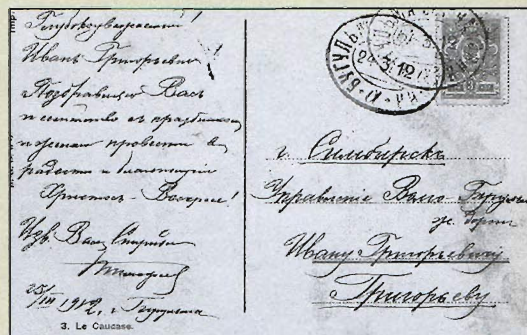 Глубокоуважаемый
Иванъ Григорьевич!
Поздравляю Васъ
и семейство съ праздникомъ
и желаю провести в
радости и
Христосъ - Воскресе!
Ув. Васъ
25/III 1912, г. Бугульма
3. Le Caucase.
БУГУЛЬМ
24.3.12
г. Симбирскъ
Управление Волго-Бугульм.
ж. дороги
Ивану Григорьевичу
Григорьеву